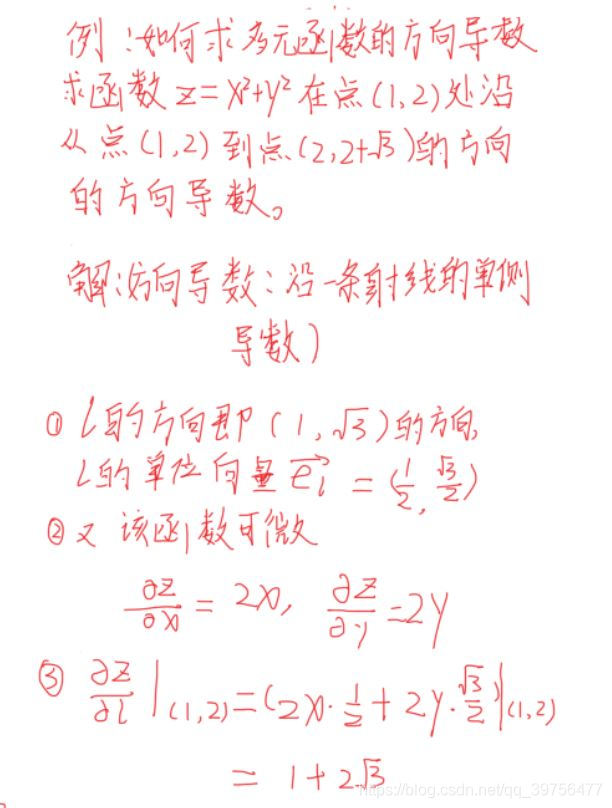 例:如何求多元函数的方向导数
求函数 z=x²+y² 在点(1,2)处沿
从点(1,2)到点(2,2+√3)的方向
的方向导数。
解:(方向导数:沿一条射线的单侧
导数)
① l的方向即(1,√3)的方向,
l的单位向量 e⃗ₗ = (1/2, √3/2)
② 又 该函数可微
∂z/∂x = 2x, ∂z/∂y = 2y
③ ∂z/∂l |(1,2) = (2x·1/2 + 2y·√3/2)|(1,2)
= 1+2√3
https://blog.csdn.net/qq_39756477